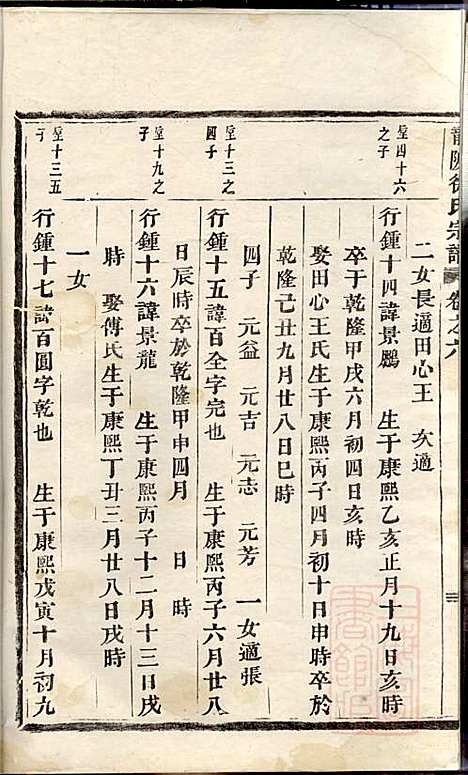 徐氏宗譜 卷之六
二女長適田心王 次適
垕四十六之子
行鍾十四諱景鵬 生于康熙乙亥正月十九日亥時
卒于乾隆甲戌六月初四日亥時
娶田心王氏生于康熙丙子四月初十日申時卒於
乾隆己丑九月廿八日巳時
四子 元益 元吉 元志 元芳 一女適張
垕十三之四子
行鍾十五諱百全字完也 生于康熙丙子六月廿八
日辰時卒於乾隆甲申四月 日 時
垕十九之子
行鍾十六諱景龍 生于康熙丙子十二月十三日戌
時 娶傅氏生于康熙丁丑三月廿八日戌時
一女
垕十三五子
行鍾十七諱百圓字乾也 生于康熙戊寅十月初九